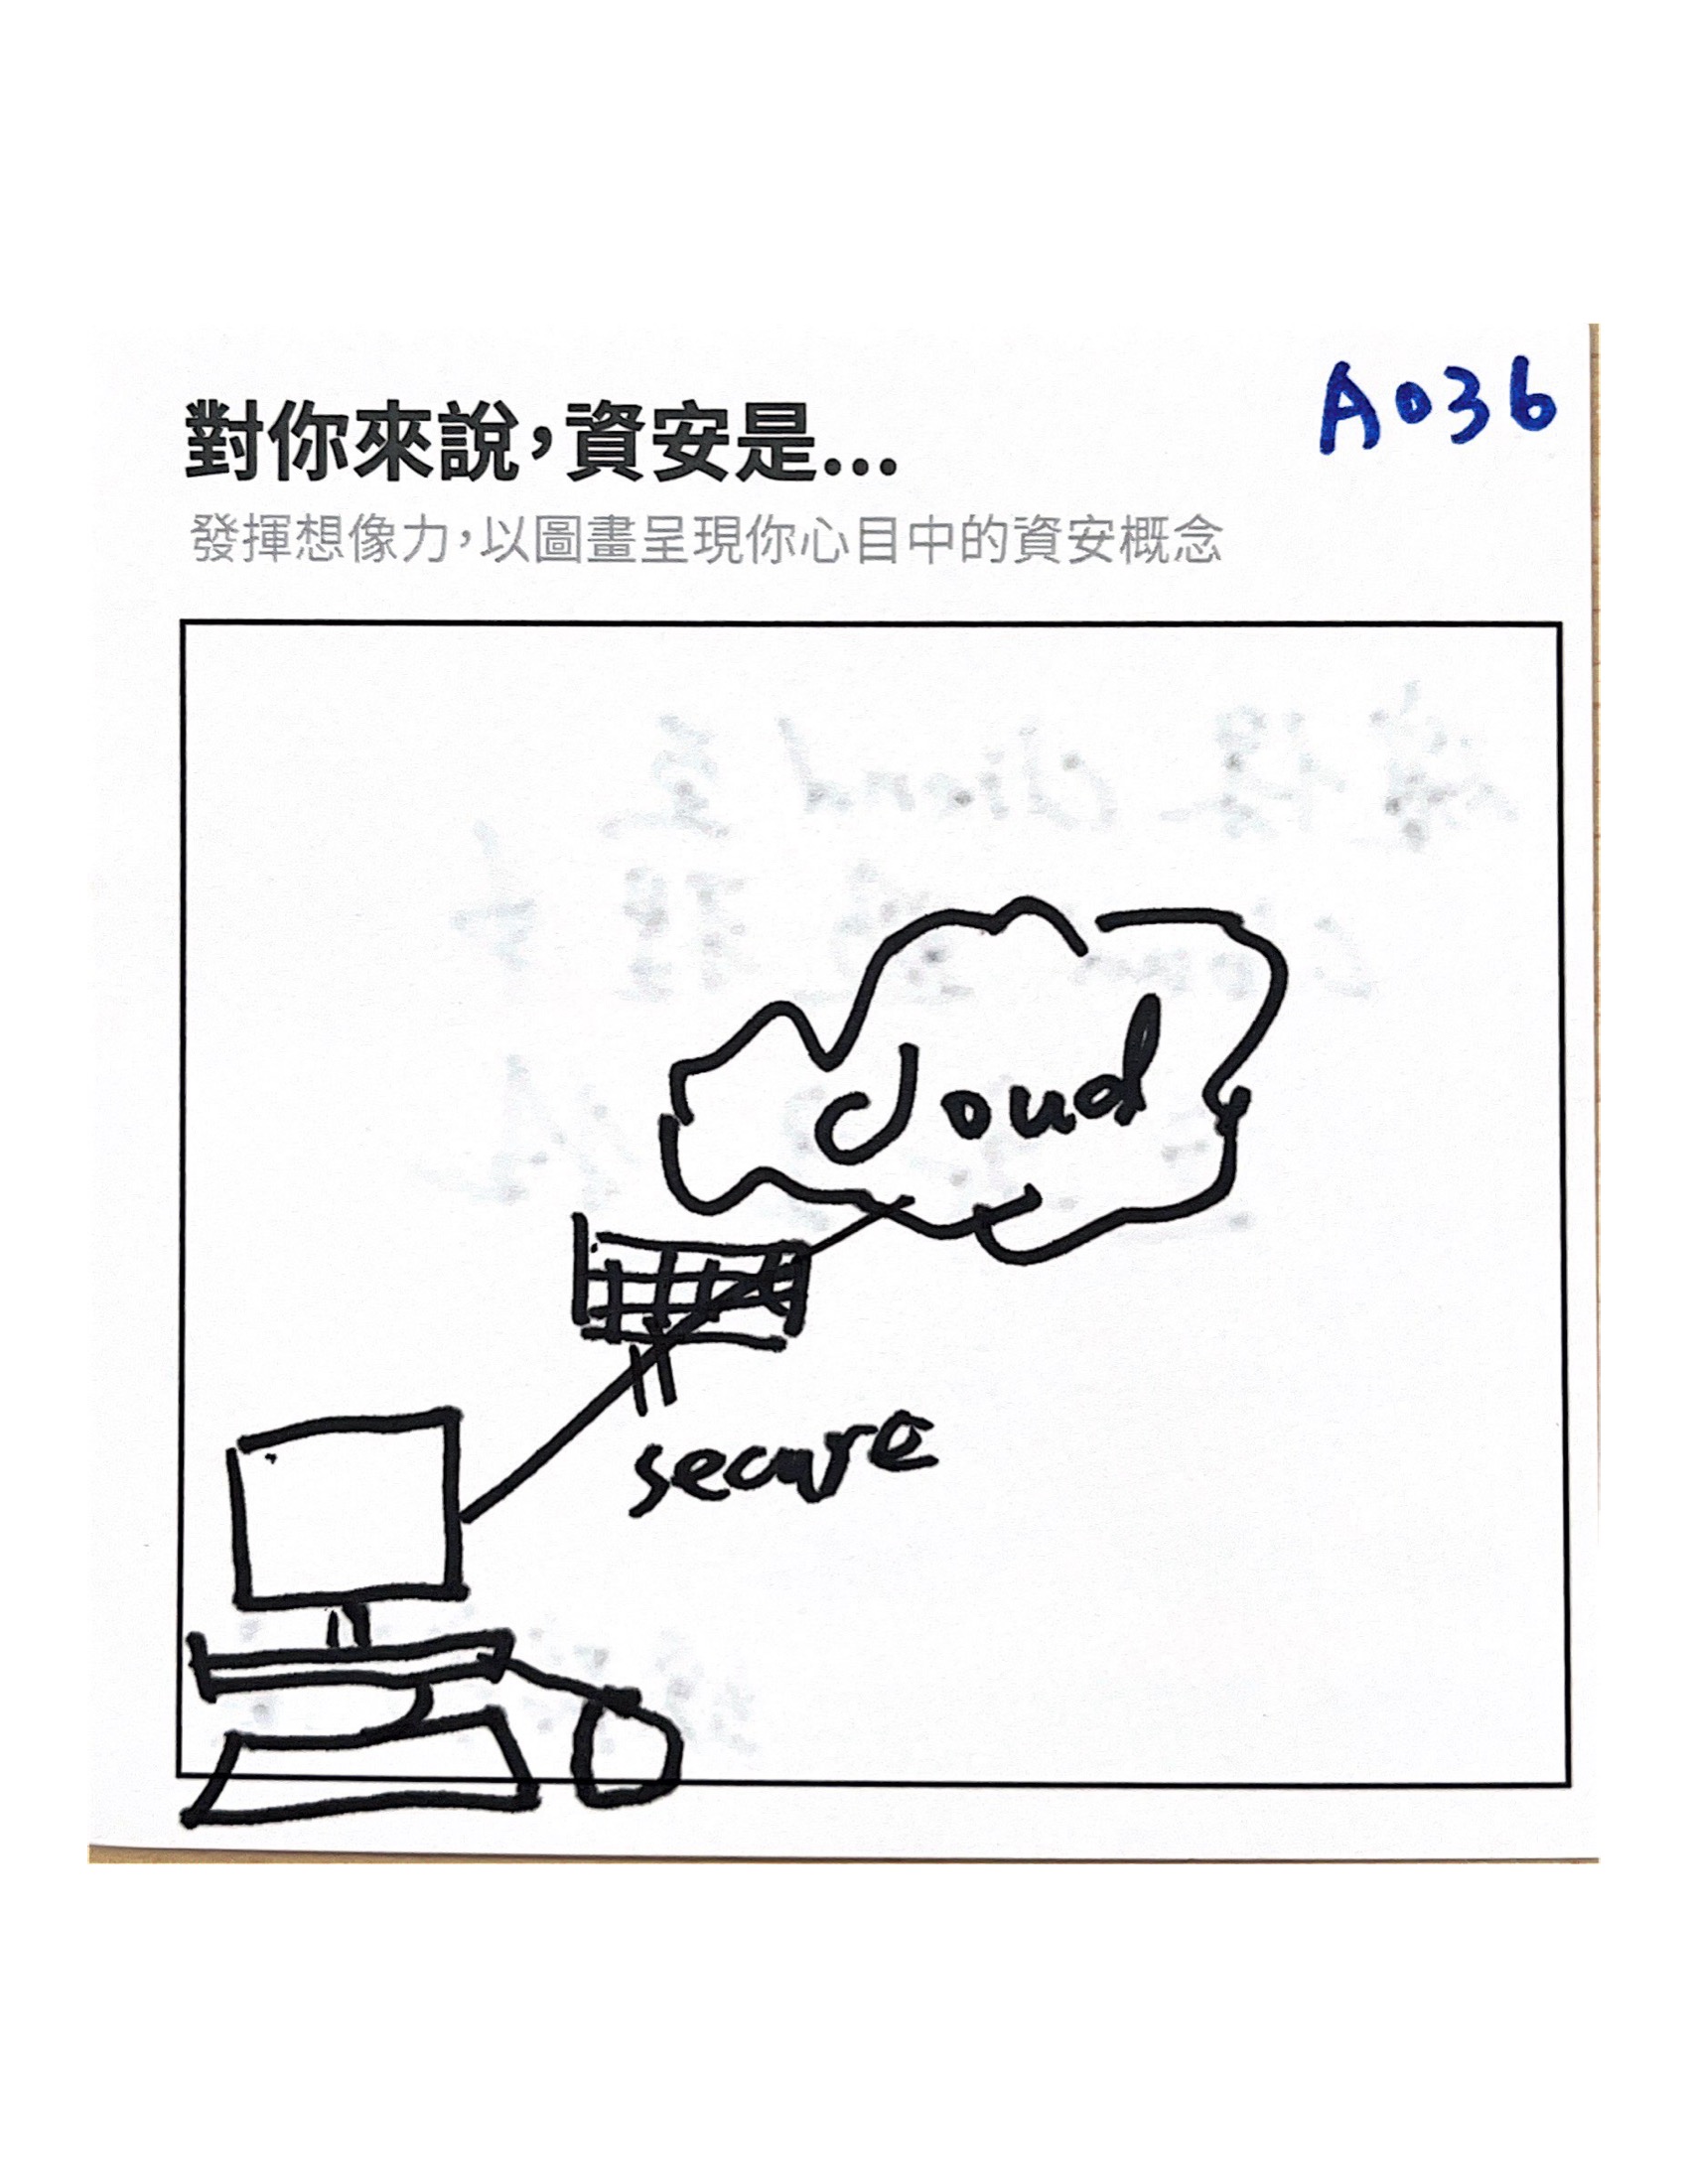 A036
對你來說,資安是...
發揮想像力,以圖畫呈現你心目中的資安概念
cloud
secure